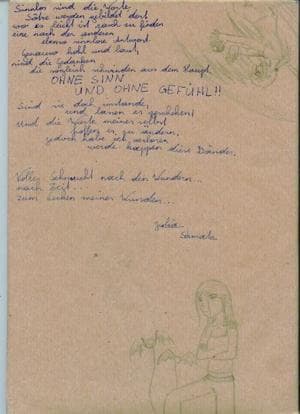 Sinnlos sind die Worte,
Sätze werden gebildet dort
wo es leicht ist rasch zu finden
eine nach der anderen
ebenso sinnlose Antwort.
Genauso hohl und laut,
sind die Gedanken
die sogleich schwinden aus dem Haupt.
OHNE SINN
UND OHNE GEFÜHL!!
Sind sie doch imstande,
und lassen es geschehen!
Und die Werte meiner selbst
hoffen es zu ändern,
jedoch habe ich verloren
werde kappen diese Bänder.
Voller Sehnsucht nach den Wundern...
nach Zeit...
zum lecken meiner Wunden...